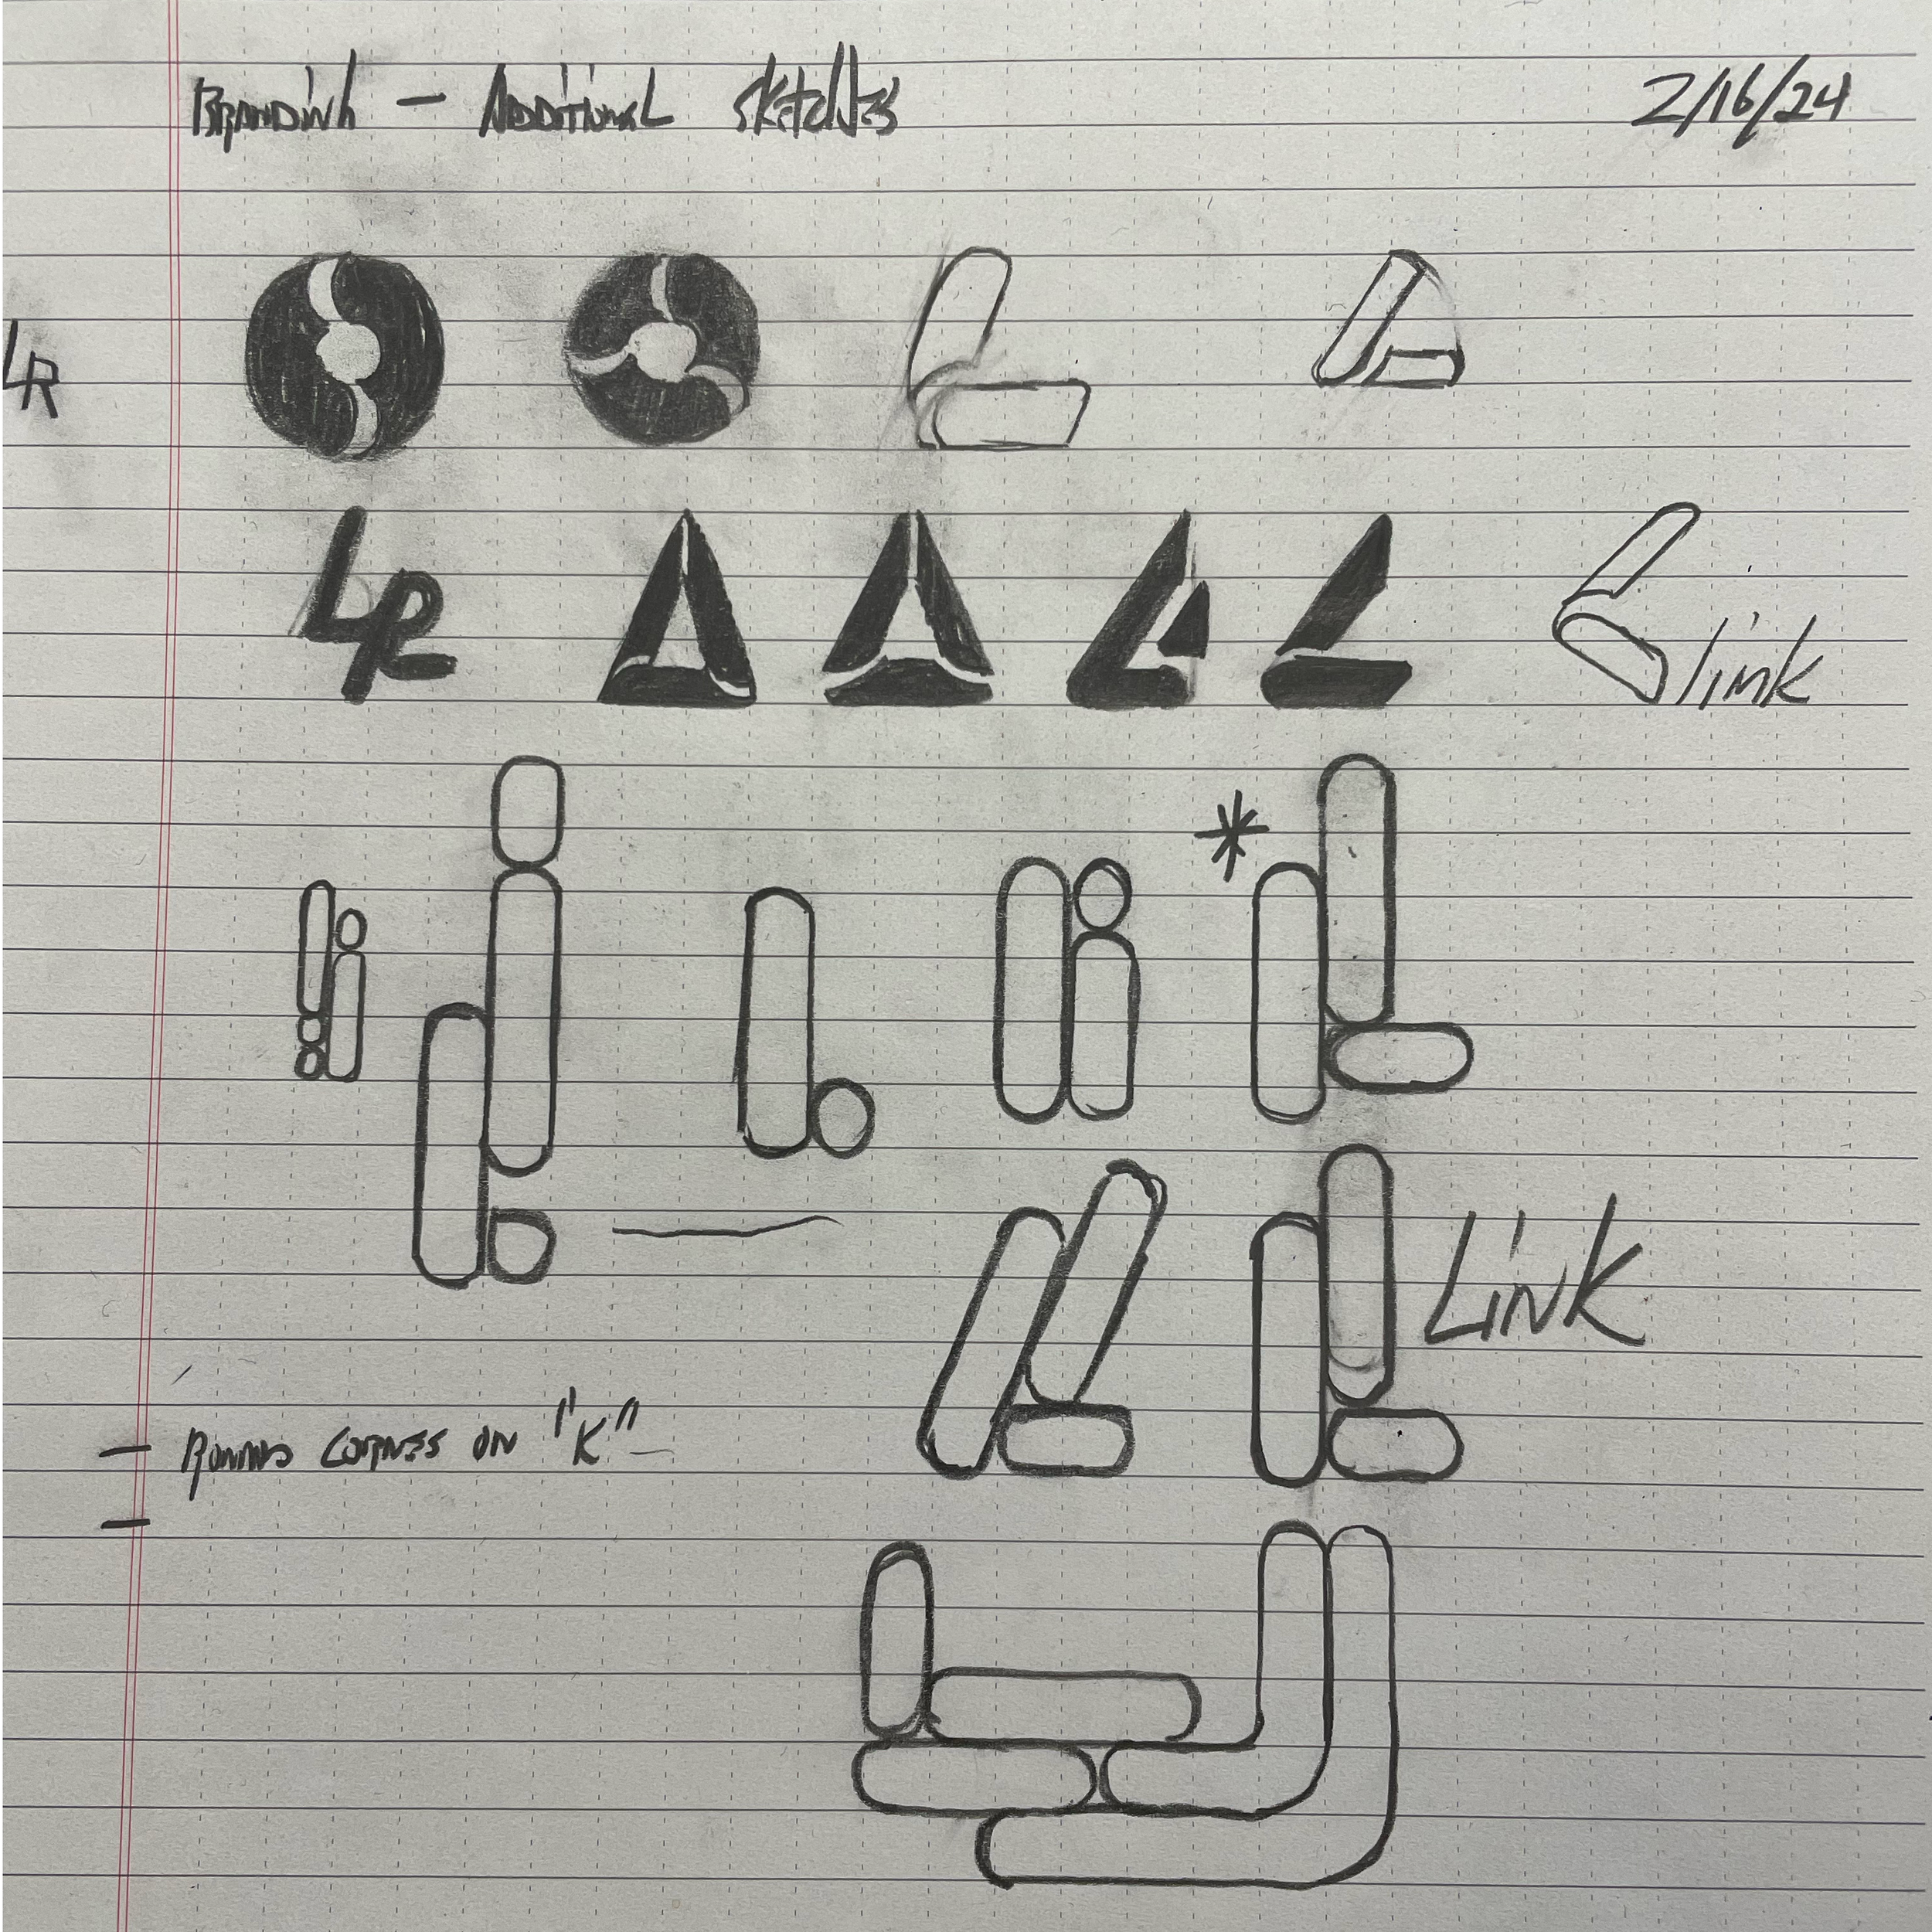 BRANDING — ADDITIONAL SKETCHES 2/16/24
LR
LR
link
LINK
— ROUND CORNERS ON "K"
—